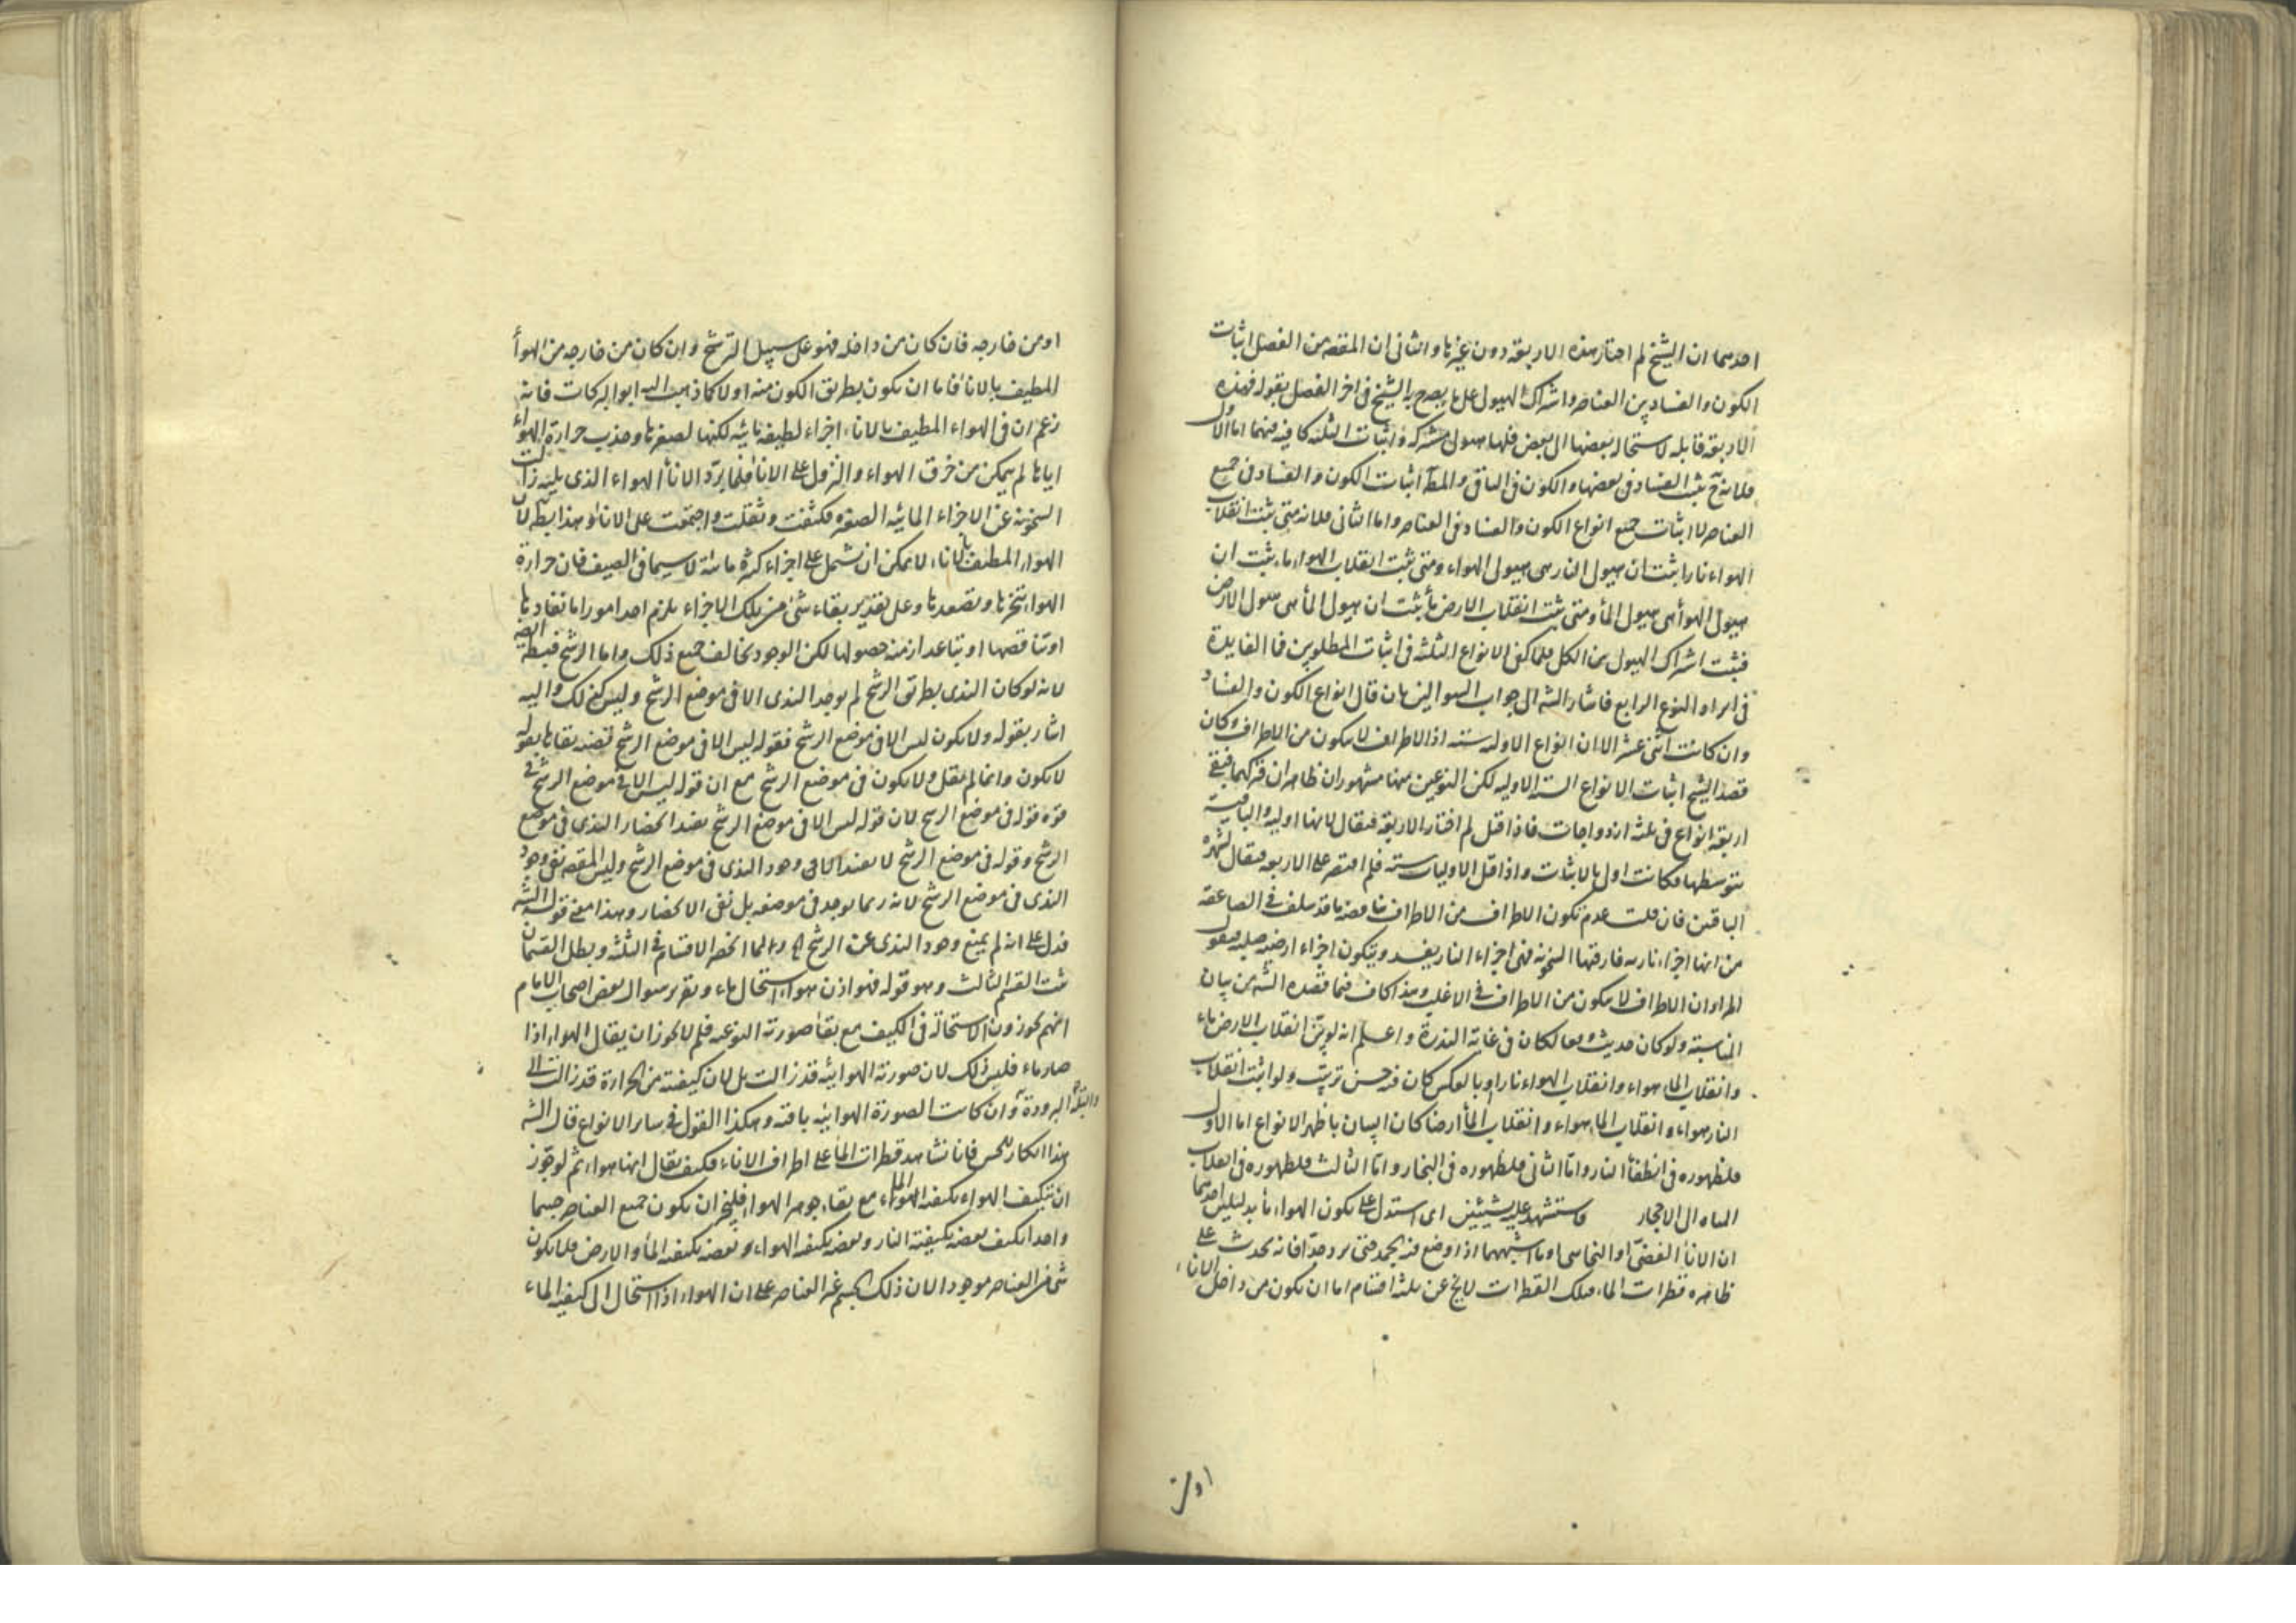 احدهما ان الشيخ لم اختار هذه الاربعة دون غيرها والثانى ان المقصد من الفصل اثبات
الكون والفساد بين العناصر واشتراك الهيولى على ما يصرح به الشيخ فى اخر الفصل بقوله فهذه
الاربعة قابلة لاستحالة بعضها الى بعض فلها هيولى مشتركة واثبات الثلثة كافية فيهما اما الاول
فلانه ح يثبت الفساد فى بعضها والكون فى الباقى والمط اثبات الكون والفساد فى جميع
العناصر لا اثبات جميع انواع الكون والفساد فى العناصر واما الثانى فلانه متى يثبت انقلاب
الهواء نارا يثبت ان هيولى النار هى هيولى الهواء ومتى يثبت انقلاب الهواء ماء يثبت ان
هيولى الهواء هى هيولى الماء ومتى يثبت انقلاب الارض ماء يثبت ان هيولى الماء هى هيولى الارض
فيثبت اشتراك الهيولى بين الكل فلما كفى الانواع الثلثة فى اثبات المطلوبين فما الفايدة
فى ايراد النوع الرابع فاشار الشه الى جواب السوالين بان قال انواع الكون والفساد
وان كانت اثنى عشر الا ان الانواع الاولية ستة اذ الاطراف لا يتكون من الاطراف وكان
قصد الشيخ اثبات الانواع الستة الاولية لكن النوعين منها مشهوران ظاهران فتركهما فبقى
اربعة انواع فى ثلثة ازدواجات فاذا قيل لم اختار الاربعة فيقال لانها اولية والباقية
بتوسطها فكانت اولى بالاثبات واذا قيل الاوليات ستة فلم اقتصر على الاربعة فيقال لشهرة
الباقيين فان قلت عدم تكون الاطراف من الاطراف يناقضه ما قد سلف فى الصاعقة
من انها اجزاء نارية فارقتها السخونة فهى اجزاء النار يفسد ويتكون اجزاء ارضية صلبة فيقول
المراد ان الاطراف لا يتكون من الاطراف فى الاغلب وهذا كاف فيما قصده الشه من بيان
المناسبة ولو كان حديث لكان فى غاية الندرة واعلم انه لو بين انقلاب الارض ماء
وانقلاب الماء هواء وانقلاب الهواء نارا وبالعكس كان فيه حسن ترتيب ولو اثبت انقلاب
النار هواء وانقلاب الماء هواء وانقلاب الماء ارضا كان البيان باظهر الانواع اما الاول
فلظهوره فى انطفاء النار واما الثانى فلظهوره فى البخار واما الثالث فلظهوره فى انقلاب
المياه الى الاحجار واستشهد عليه بشيئين اى استدل على تكون الهواء ماء بدليلين احدهما
ان الاناء الفضى او النحاسى او ما اشبههما اذا وضع فيه الجمد حتى برد جدا فانه يحدث على
ظاهره قطرات الماء فتلك القطرات لا يخ عن ثلثة اقسام اما ان يكون من داخل الاناء
او من
او من خارجه فان كان من داخله فهو على سبيل الترشح وان كان من خارجه من الهواء
المطيف بالاناء فاما ان يكون بطريق الكون منه او لا كما ذهب اليه ابو البركات فانه
زعم ان فى الهواء المطيف بالاناء اجزاء لطيفة مائية لكنها لصغرها وجذب حرارة الهواء
اياها لم يتمكن من خرق الهواء والنزول على الاناء فلما برد الاناء الهواء الذى يليه زالت
السخونة عن الاجزاء المائية الصغيرة فكثفت وثقلت واجتمعت على الاناء وهذا بط لان
الهواء المطيف بالاناء لا يمكن ان يشتمل على اجزاء كثيرة مائية لا سيما فى الصيف فان حرارة
الهواء تبخرها وتصعدها وعلى تقدير بقاء شئ من تلك الاجزاء يلزم احد امور اما نفادها
او تناقصها او تباعد ازمنة حصولها لكن الوجود يخالف جميع ذلك واما الرشح فبط ايضا
لانه لو كان الندى بطريق الرشح لم يوجد الندى الا فى موضع الرشح وليس كذلك واليه
اشار بقوله ولا يكون ليس الا فى موضع الرشح فقوله ليس الا فى موضع الرشح قضية نفاها بقوله
لا يكون وانما لم يقل ولا يكون فى موضع الرشح مع ان قوله ليس الا فى موضع الرشح فى
قوة قوله فى موضع الرشح لان قوله ليس الا فى موضع الرشح يفيد انحصار الندى فى موضع
الرشح وقوله فى موضع الرشح لا يفيد الا وجود الندى فى موضع الرشح وليس المقصد نفى وجود
الندى فى موضع الرشح لانه ربما يوجد فى موضعه بل نفى الانحصار وهذا معنى قول الشه
فدل على انه لم يمنع وجود الندى عن الرشح ولما انحصر الاقسام فى الثلثة وبطل القسمان
ثبت القسم الثالث وهو قوله فهو اذن هواء استحال ماء وتقرير سوال بعض اصحاب الامام
انهم يجوزون الاستحالة فى الكيف مع بقاء صورته النوعية فلم لا يجوز ان يقال الهواء اذا
صار ماء فليس ذلك لان صورته الهوائية قد زالت بل لان كيفيته من الحرارة قد زالت الى
البرودة وان كانت الصورة الهوائية باقية وهكذا القول فى ساير الانواع قال الشه
هذا انكار للحس فانا نشاهد قطرات الماء على اطراف الاناء فكيف يقال انها هواء ثم لو جوز
ان يتكيف الهواء بكيفية الماء مع بقاء جوهر الهواء فليجز ان يكون جميع العناصر جسما
واحدا يكيف بعضه بكيفية النار وبعضه بكيفية الهواء وبعضه بكيفية الماء والارض فلا يكون
شئ من العناصر موجودا لان ذلك الجسم غير العناصر على ان الهواء اذا استحال الى كيفية الماء